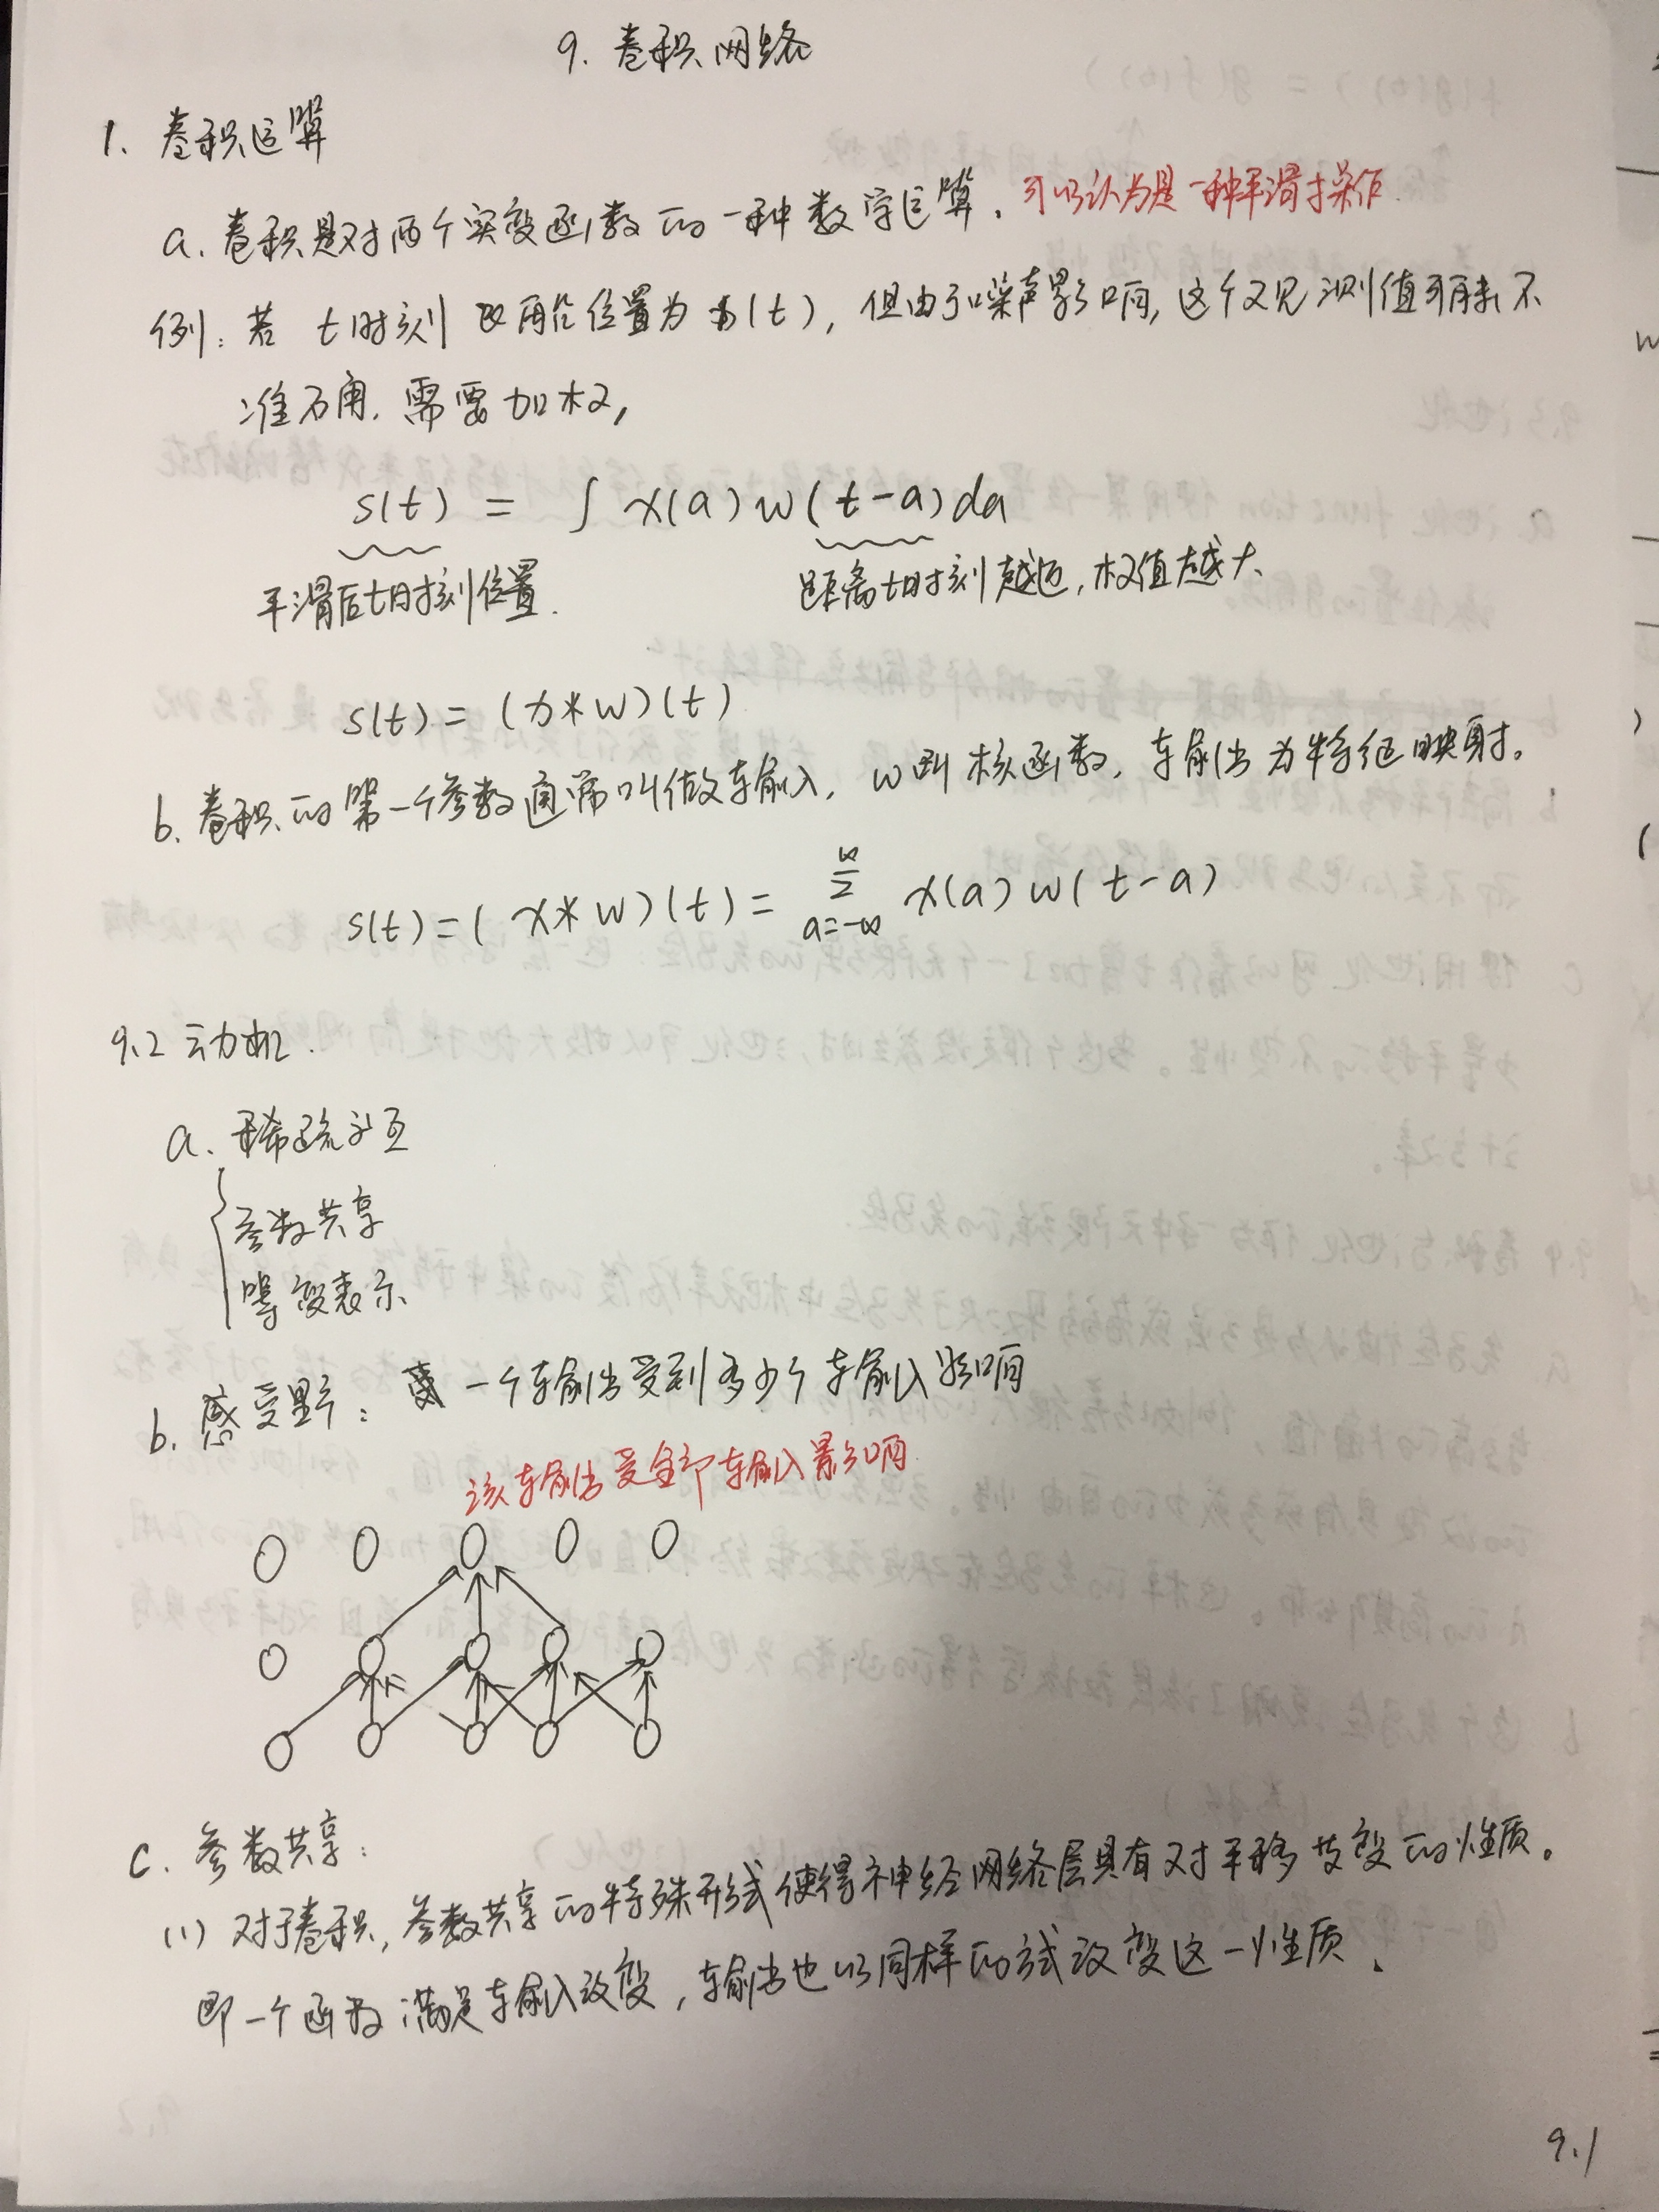 9. 卷积网络
1. 卷积运算
a. 卷积是对两个实变函数的一种数学运算. 可以认为是一种平滑操作.
例: 若 t时刻 位置为 x(t), 但由于噪声影响, 这个观测值可能不
准确. 需要加权,
s(t) = ∫ x(a) w(t-a) da
平滑后t时刻位置. 距离t时刻越近, 权值越大.
s(t) = (x*w)(t)
b. 卷积的第一个参数通常叫做输入, w叫核函数, 输出为特征映射。
s(t) = (x*w)(t) = ∑_{a=-∞}^{∞} x(a) w(t-a)
9.2 动机.
a. 稀疏交互
参数共享
等变表示
b. 感受野: 一个输出受到多少个输入影响
该输出受全部输入影响
c. 参数共享:
(1) 对于卷积, 参数共享的特殊形式使得神经网络层具有对平移等变的性质。
即一个函数满足输入改变, 输出也以同样的方式改变这一性质.
9.1